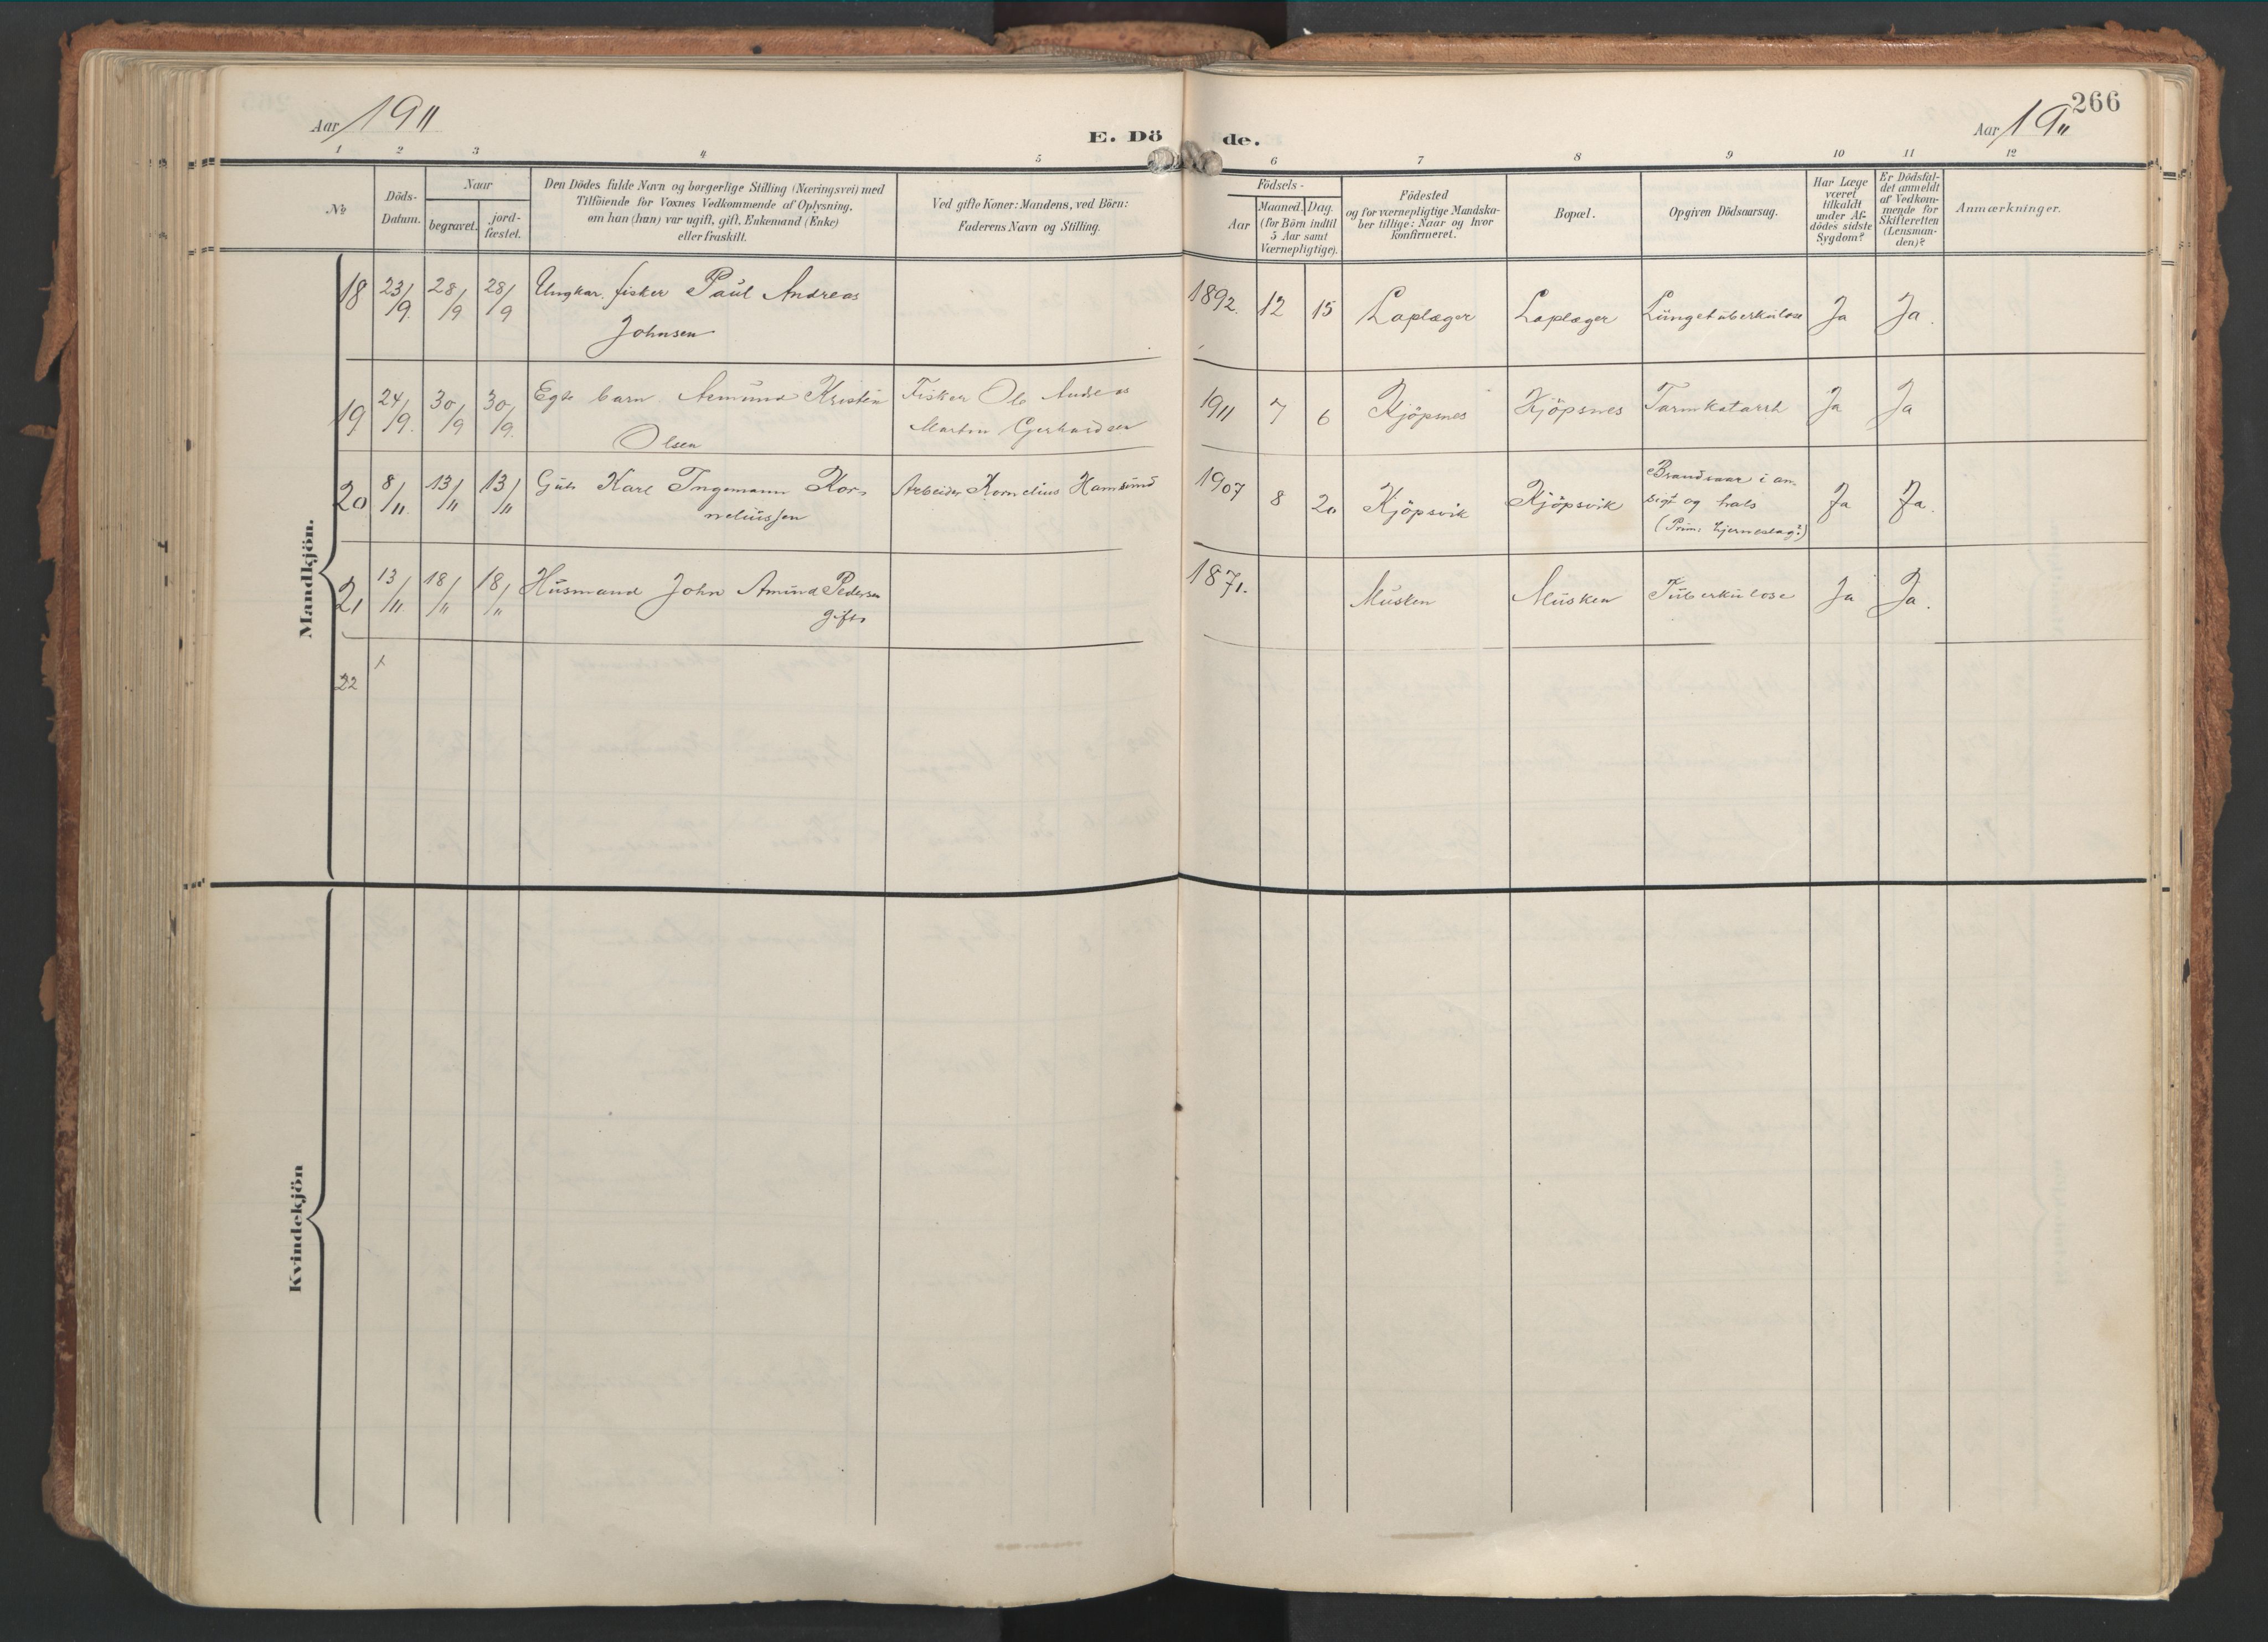 266
Aar 1911
E. Dö de.
Aar 1911
1 2 3 4 5 6 7 8 9 10 11 12
No
Döds-
Datum.
Naar
begravet.
jord-
fæstet.
Den Dödes fulde Navn og borgerlige Stilling (Næringsvei) med
Tilföiende for Voxnes Vedkommende af Oplysning,
om han (hun) var ugift, gift, Enkemand (Enke)
eller fraskilt.
Ved gifte Koner: Mandens, ved Börn:
Faderens Navn og Stilling.
Födsels-
Aar
Maaned. Dag.
(for Börn indtil
5 Aar samt
Værnepligtige).
Födested
og for værnepligtige Mandska-
ber tillige: Naar og hvor
konfirmeret.
Bopæl.
Opgiven Dödsaarsag.
Har Læge
været
tilkaldt
under Af-
dödes sidste
Sygdom?
Er Dödsfal-
det anmeldt
af Vedkom-
mende for
Skifteretten
(Lensman-
den)?
Anmærkninger.
Mandkjön.
18 23/9. 28/9 28/9 Ungkar fisker Paul Andreas
Johnsen
1892. 12 15 Laplæger Laplæger Lungetuberkulose Ja Ja.
19 24/9. 30/9 30/9. Egte barn Asmund Kristin
Olsen
Fisker Ole Andreas
Martin Gerhardsen
1911 7 6 Kjöpsnes Kjöpsnes Tarmkatarrh Ja Ja
20 8/11. 13/11 13/11 Gut Karl Ingemann Kor-
neliussen
Arbeider Kornelius Hamsund
1907 8 20 Kjöpsvik Kjöpsvik
Brandsaar i an-
sigt og hals
(Prim: hjerneslag?)
Ja Ja.
21 13/11 18/11 18/11 Husmand John Amund Pedersen
gift
1871. Musken Musken Tuberkulose Ja Ja.
22 x
Kvindekjön